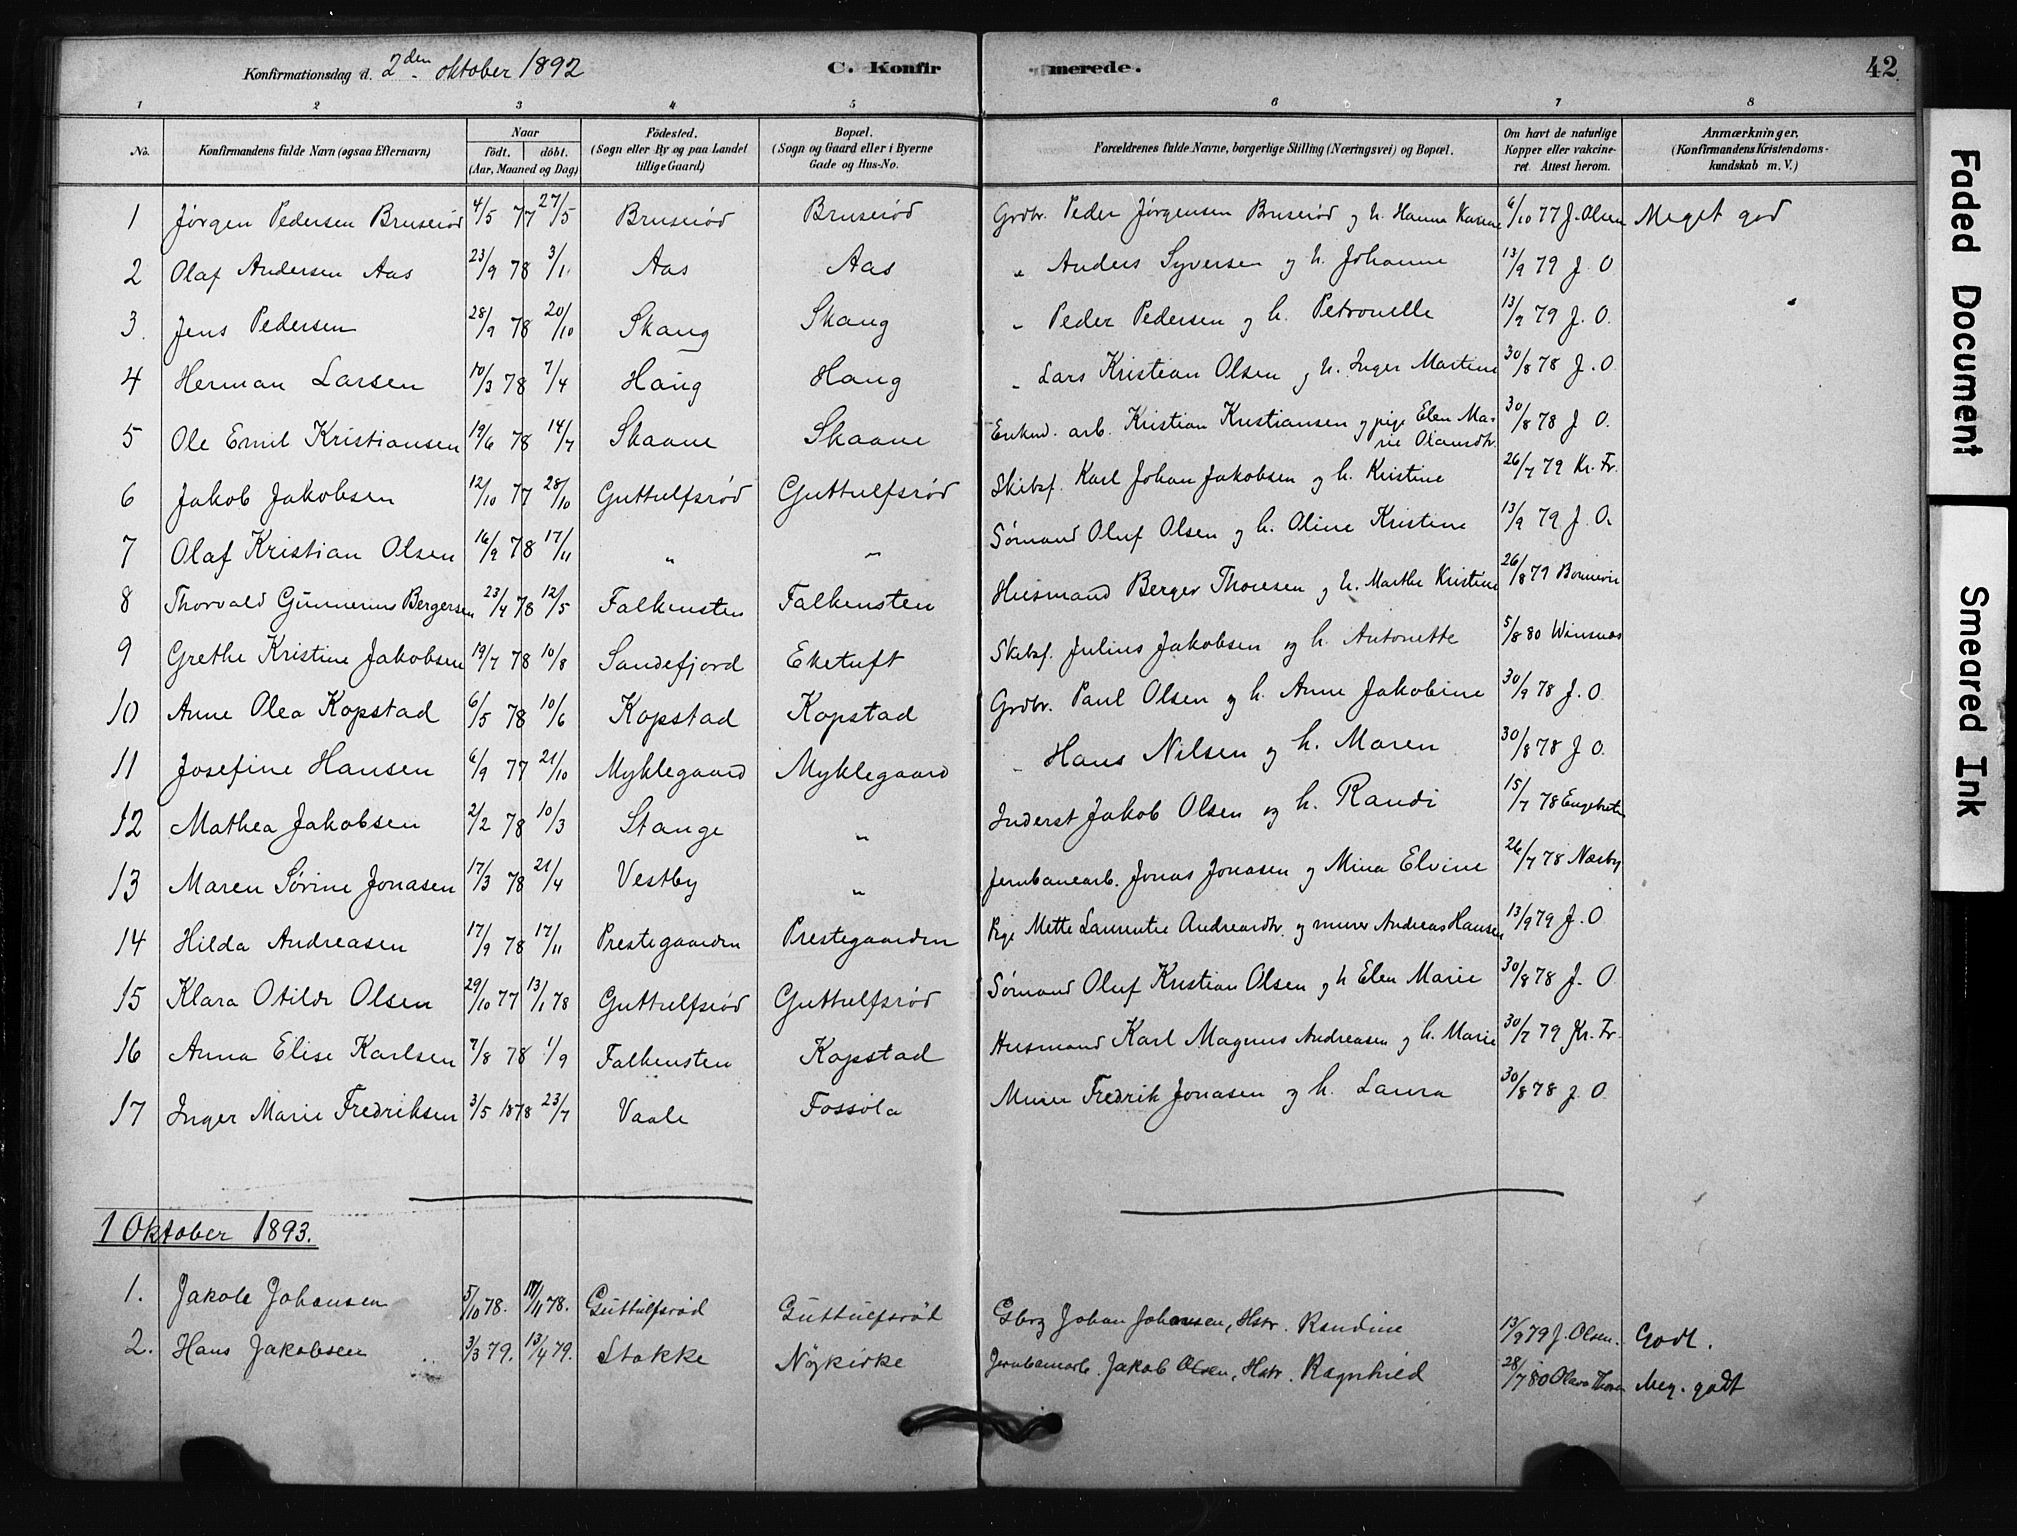 Konfirmationsdag d. 2den oktober 1892 C. Konfirmerede. 42
1 2 3 4 5 6 7 8
No. Konfirmandens fulde Navn (ogsaa Efternavn) Naar født. døbt. (Aar, Maaned og Dag) Fødested. (Sogn eller By og paa Landet tillige Gaard) Bopæl. (Sogn og Gaard eller i Byerne Gade og Hus-No. Forældrenes fulde Navne, borgerlige Stilling (Næringsvei) og Bopæl. Om havt de naturlige Kopper eller vakcineret Attest herom. Anmærkninger. (Konfirmandens Kristendomskundskab m. V.)
1 Jørgen Pedersen Bruserød 4/5 77 27/5 Bruserød Bruserød Grdbr. Peder Jørgensen Bruserød og h. Hanne Karine 6/10 77 J. Olsen Meget god
2 Olaf Andersen Aas 23/9 78 3/11 Aas Aas " Anders Syversen og h. Johanne 13/9 79 J. O
3. Jens Pedersen 28/9 78 20/10 Skaug Skaug " Peder Pedersen og h. Petronelle 13/9 79 J. O.
4 Herman Larsen 10/3 78 7/4 Haug Haug " Lars Kristian Olsen og h. Inger Martine 30/8 78 J. O.
5 Ole Emil Kristiansen 19/6 78 14/7 Skaane Skaane Enkmd. arb. Kristian Kristiansen og pige Elen Marie Olausdtr. 30/8 78 J O.
6 Jakob Jakobsen 12/10 77 28/10 Guttulfsrød Guttulfsrød Skibsf. Karl Johan Jakobsen og h. Kristine 26/7 79 Kr. Fr.
7 Olaf Kristian Olsen 16/9 78 17/11 " " Sømand Oluf Olsen og h. Oline Kristine 13/9 79 J. O.
8 Thorvald Gunnerius Bergersen 23/4 78 12/5 Falkensten Falkensten Husmand Berger Thoresen og h. Marthe Kristine 26/8 79 Bonnevie
9 Grethe Kristine Jakobsen 19/7 78 10/8 Sandefjord Eketuft Skibsf. Julius Jakobsen og h. Antonette 5/8 80 Winsnæs
10 Anne Olea Kopstad 6/5 78 10/6 Kopstad Kopstad Grdbr. Paul Olsen og h. Anne Jakobine 30/9 78 J. O.
11 Josefine Hansen 6/9 77 21/10 Myklegaard Myklegaard " Hans Nilsen og h. Maren 30/8 78 J O.
12 Mathea Jakobsen 2/2 78 10/3 Stange " Inderst Jakob Olsen og h. Randi 15/7 78
13 Maren Sørine Jonasen 17/3 78 21/4 Vestby " Jernbanearb. Jonas Jonasen og Mina Elvine 26/7 78 Næsby
14 Hilda Andreasen 17/9 78 17/11 Prestegaarden Prestegaarden Pige Mette Laurentie Andreasdtr. og murer Andreas Hansen 13/9 79 J. O
15 Klara Otilde Olsen 29/10 77 13/1 78 Guttulfsrød Guttulfsrød Sømand Oluf Kristian Olsen og h Elen Marie 30/8 78 J. O
16 Anna Elise Karlsen 7/8 78 1/9 Falkensten Kopstad Husmand Karl Magnus Andreasen og h. Marie 30/7 79 Kr. Fr.
17 Inger Marie Fredriksen 3/5 1878 23/7 Vaale Fossola Murer Fredrik Jonasen og h. Laura 30/8 78 J. O
1 Oktober 1893.
1. Jakob Johansen 5/10 78. 17/11 78. Guttulfsrød Guttulfsrød Gbrg Johan Johansen, Hstr. Randine 13/9 79 J. Olsen. Godt.
2. Hans Jakobsen 3/3 79. 13/4 79. Stokke Nøykirke Jernbanearb. Jakob Olsen, Hstr. Ragnhild 28/7 80 Meg. godt
Faded Document
Smeared Ink